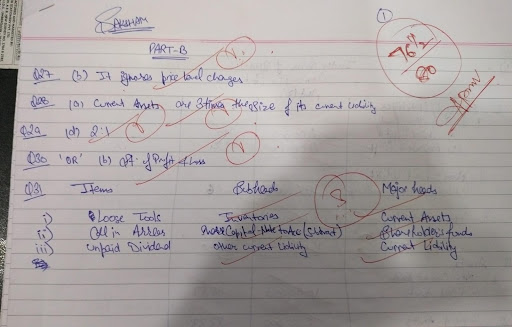 SAKSHAM
①
PART-B
76½
80
Q27 (b) It ignores price level changes
Q28 (a) Current Assets are 3 times the size of its current liability
Q29 (d) 2:1
Q30 'OR' (b) of Profit & Loss
Q31 Items Subheads Major heads
3
i) Loose Tools Inventories Current Assets
ii) Call in Arrears Share Capital-Note to A/c (Subtract) Shareholders funds
iii) Unpaid Dividend other current liability Current liability